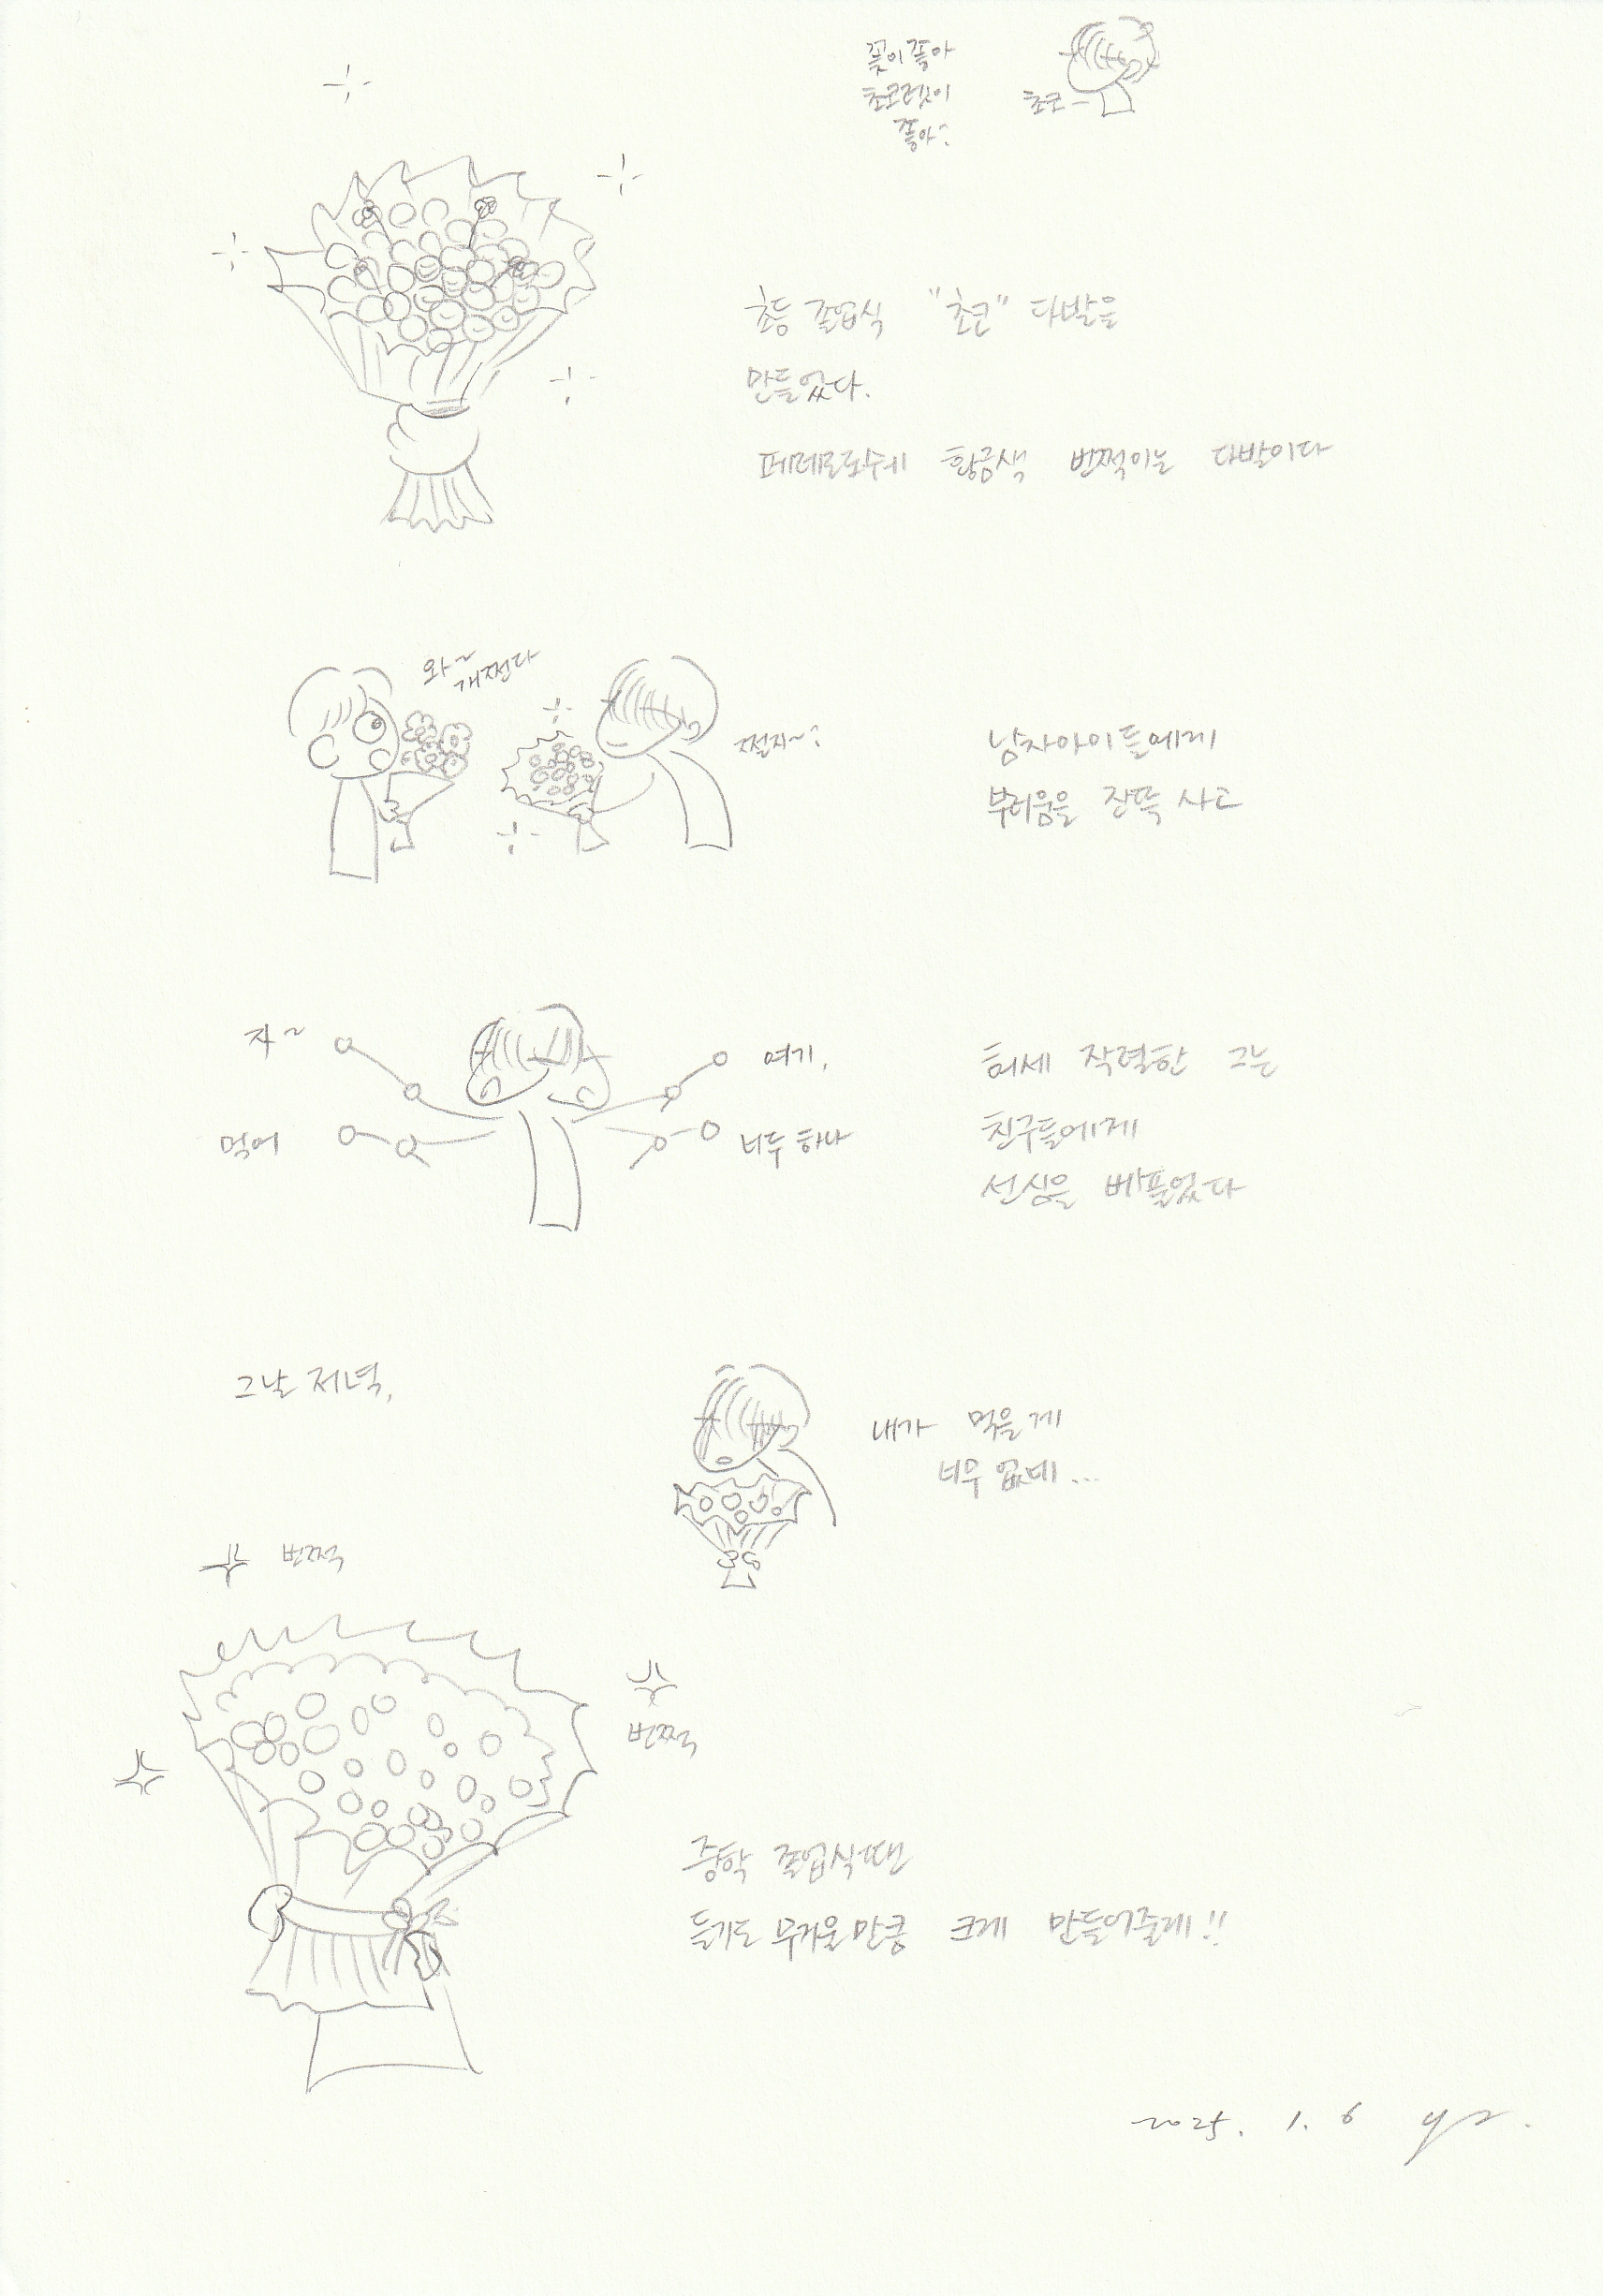 꽃이 좋아
초코렛이
좋아?
초코-
초등 졸업식 "초코" 다발을
만들었다.
페레로로쉐 황금색 번쩍이는 다발이다
와~
개쩐다
쩔지~?
남자아이들에게
부러움을 잔뜩 사고
자~
여기,
먹어
너두 하나
허세 작렬한 그는
친구들에게
선심을 베풀었다
그날 저녁,
내가 먹을게
너무 없네...
번쩍
번쩍
중학 졸업식땐
들기도 무거울만큼 크게 만들어줄게!!
2025. 1. 6